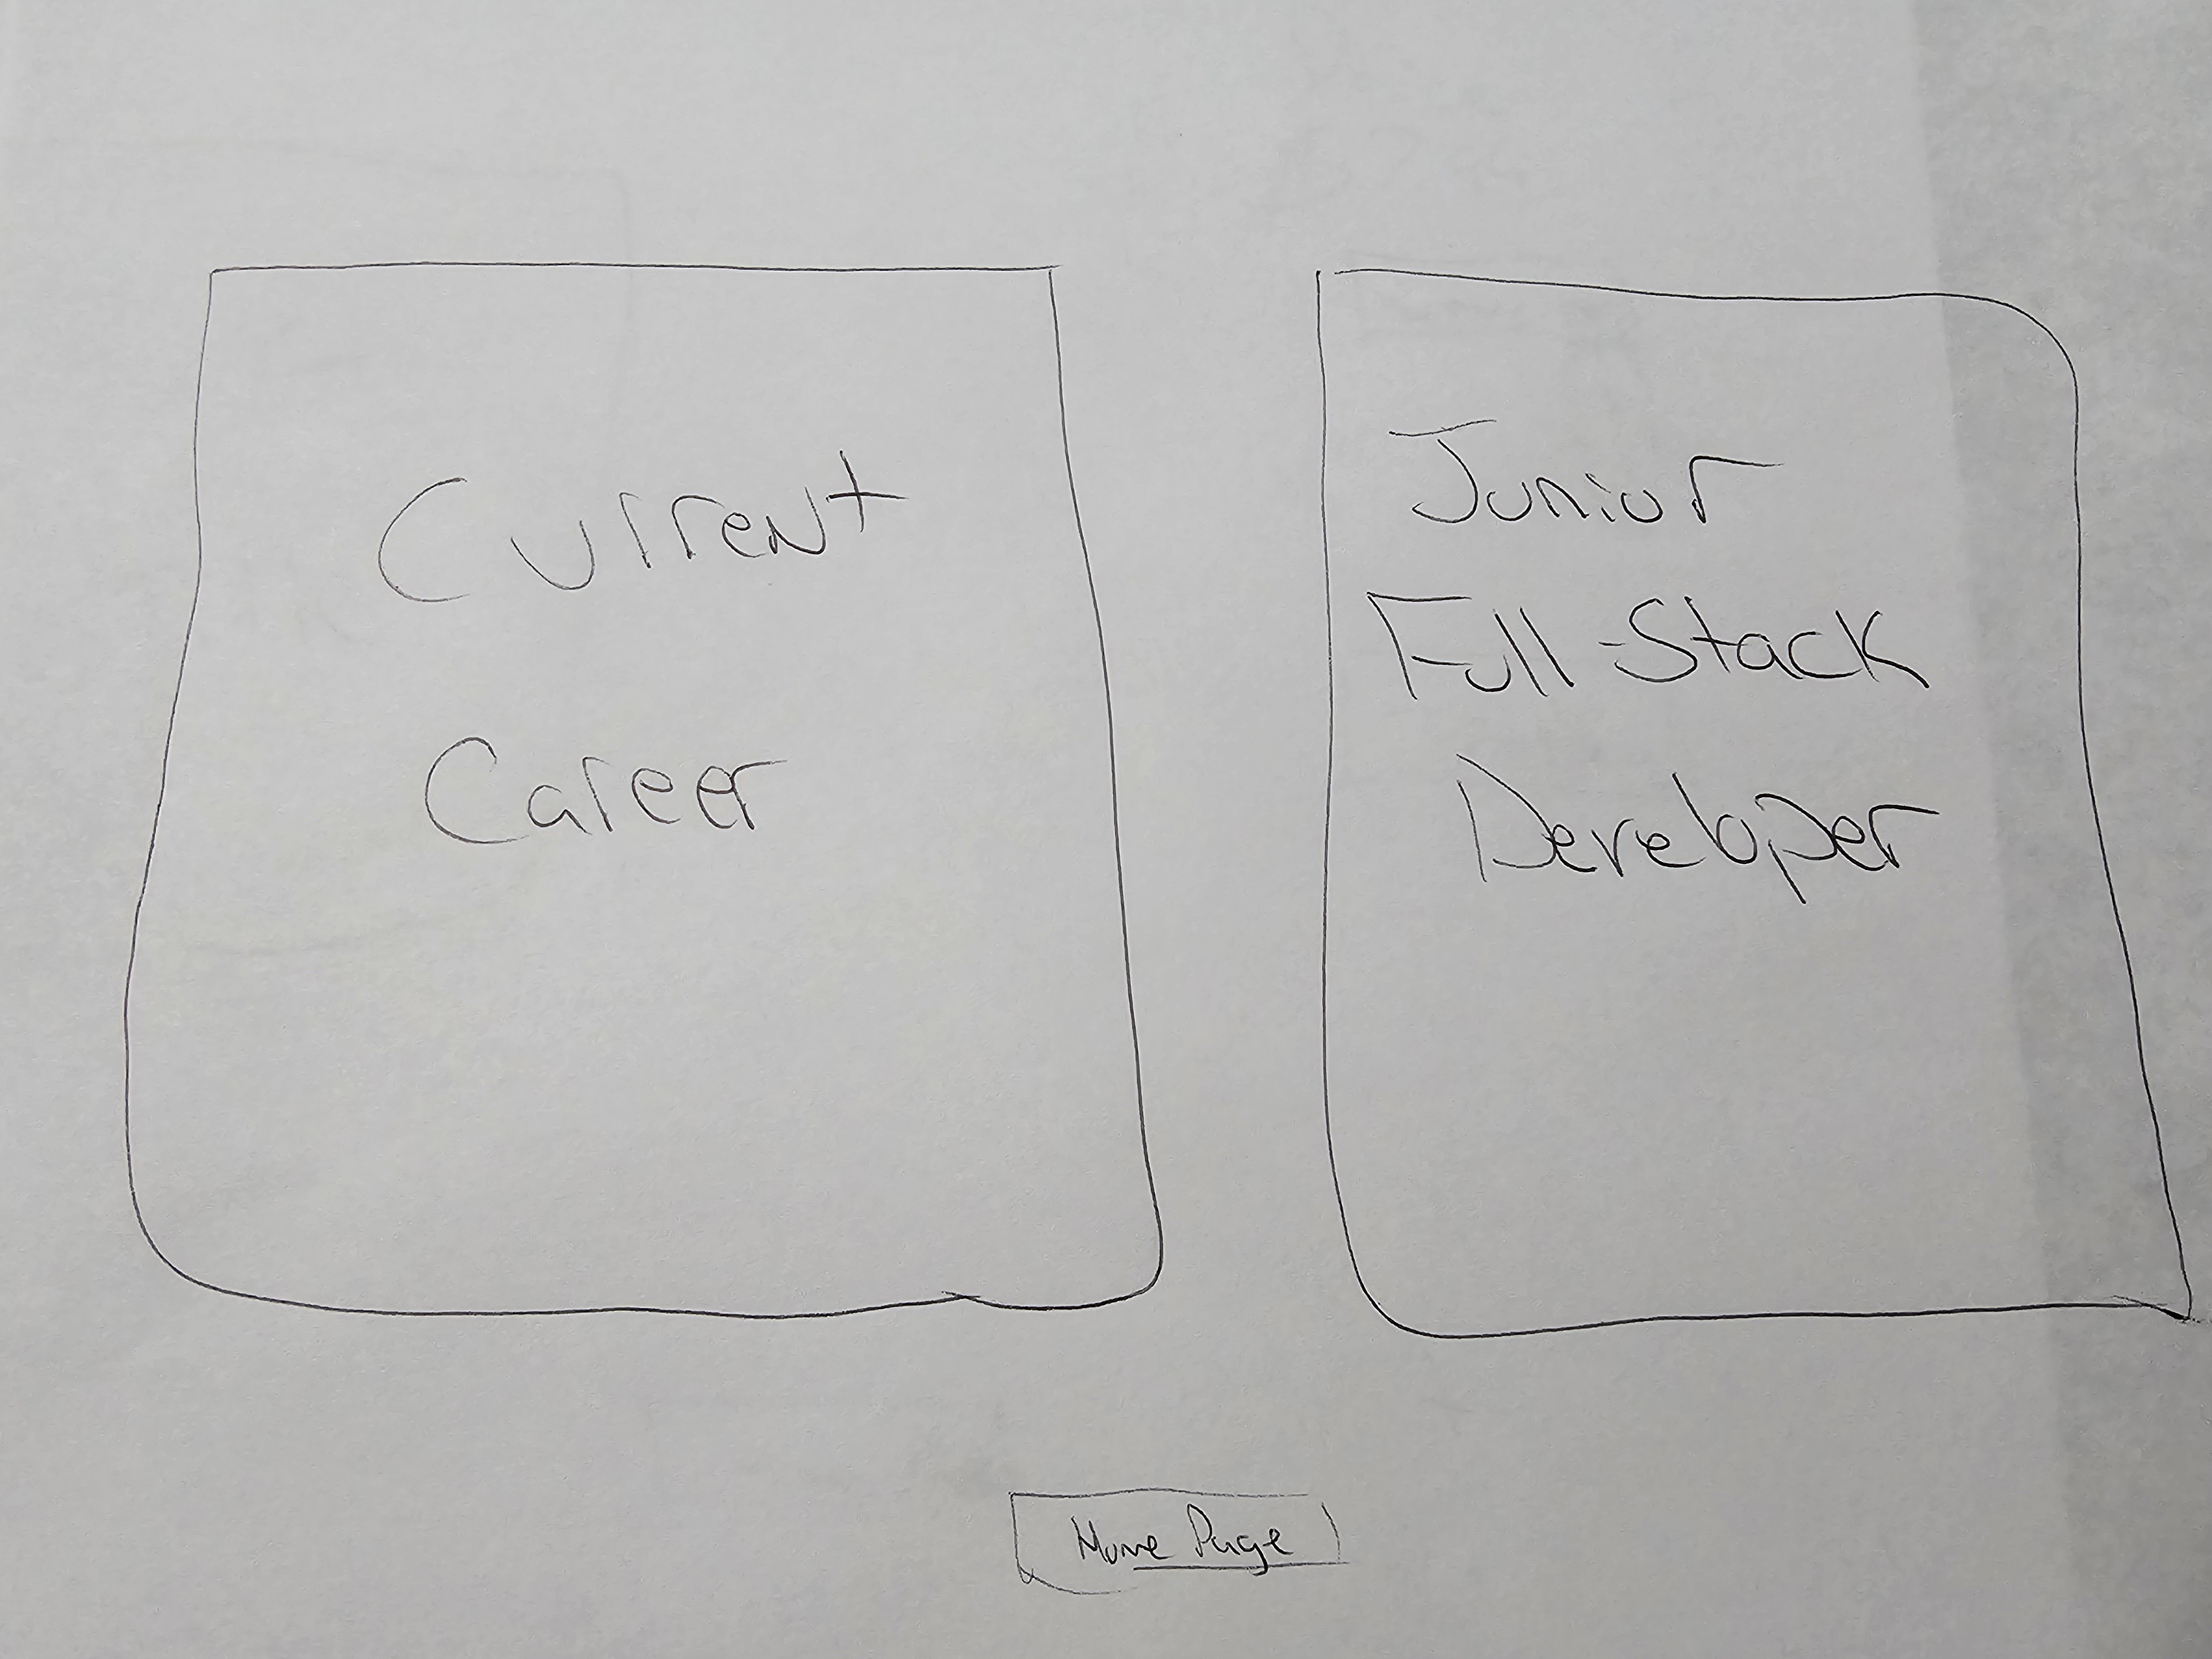 Current
Career
Junior
Full-Stack
Developer
Home Page